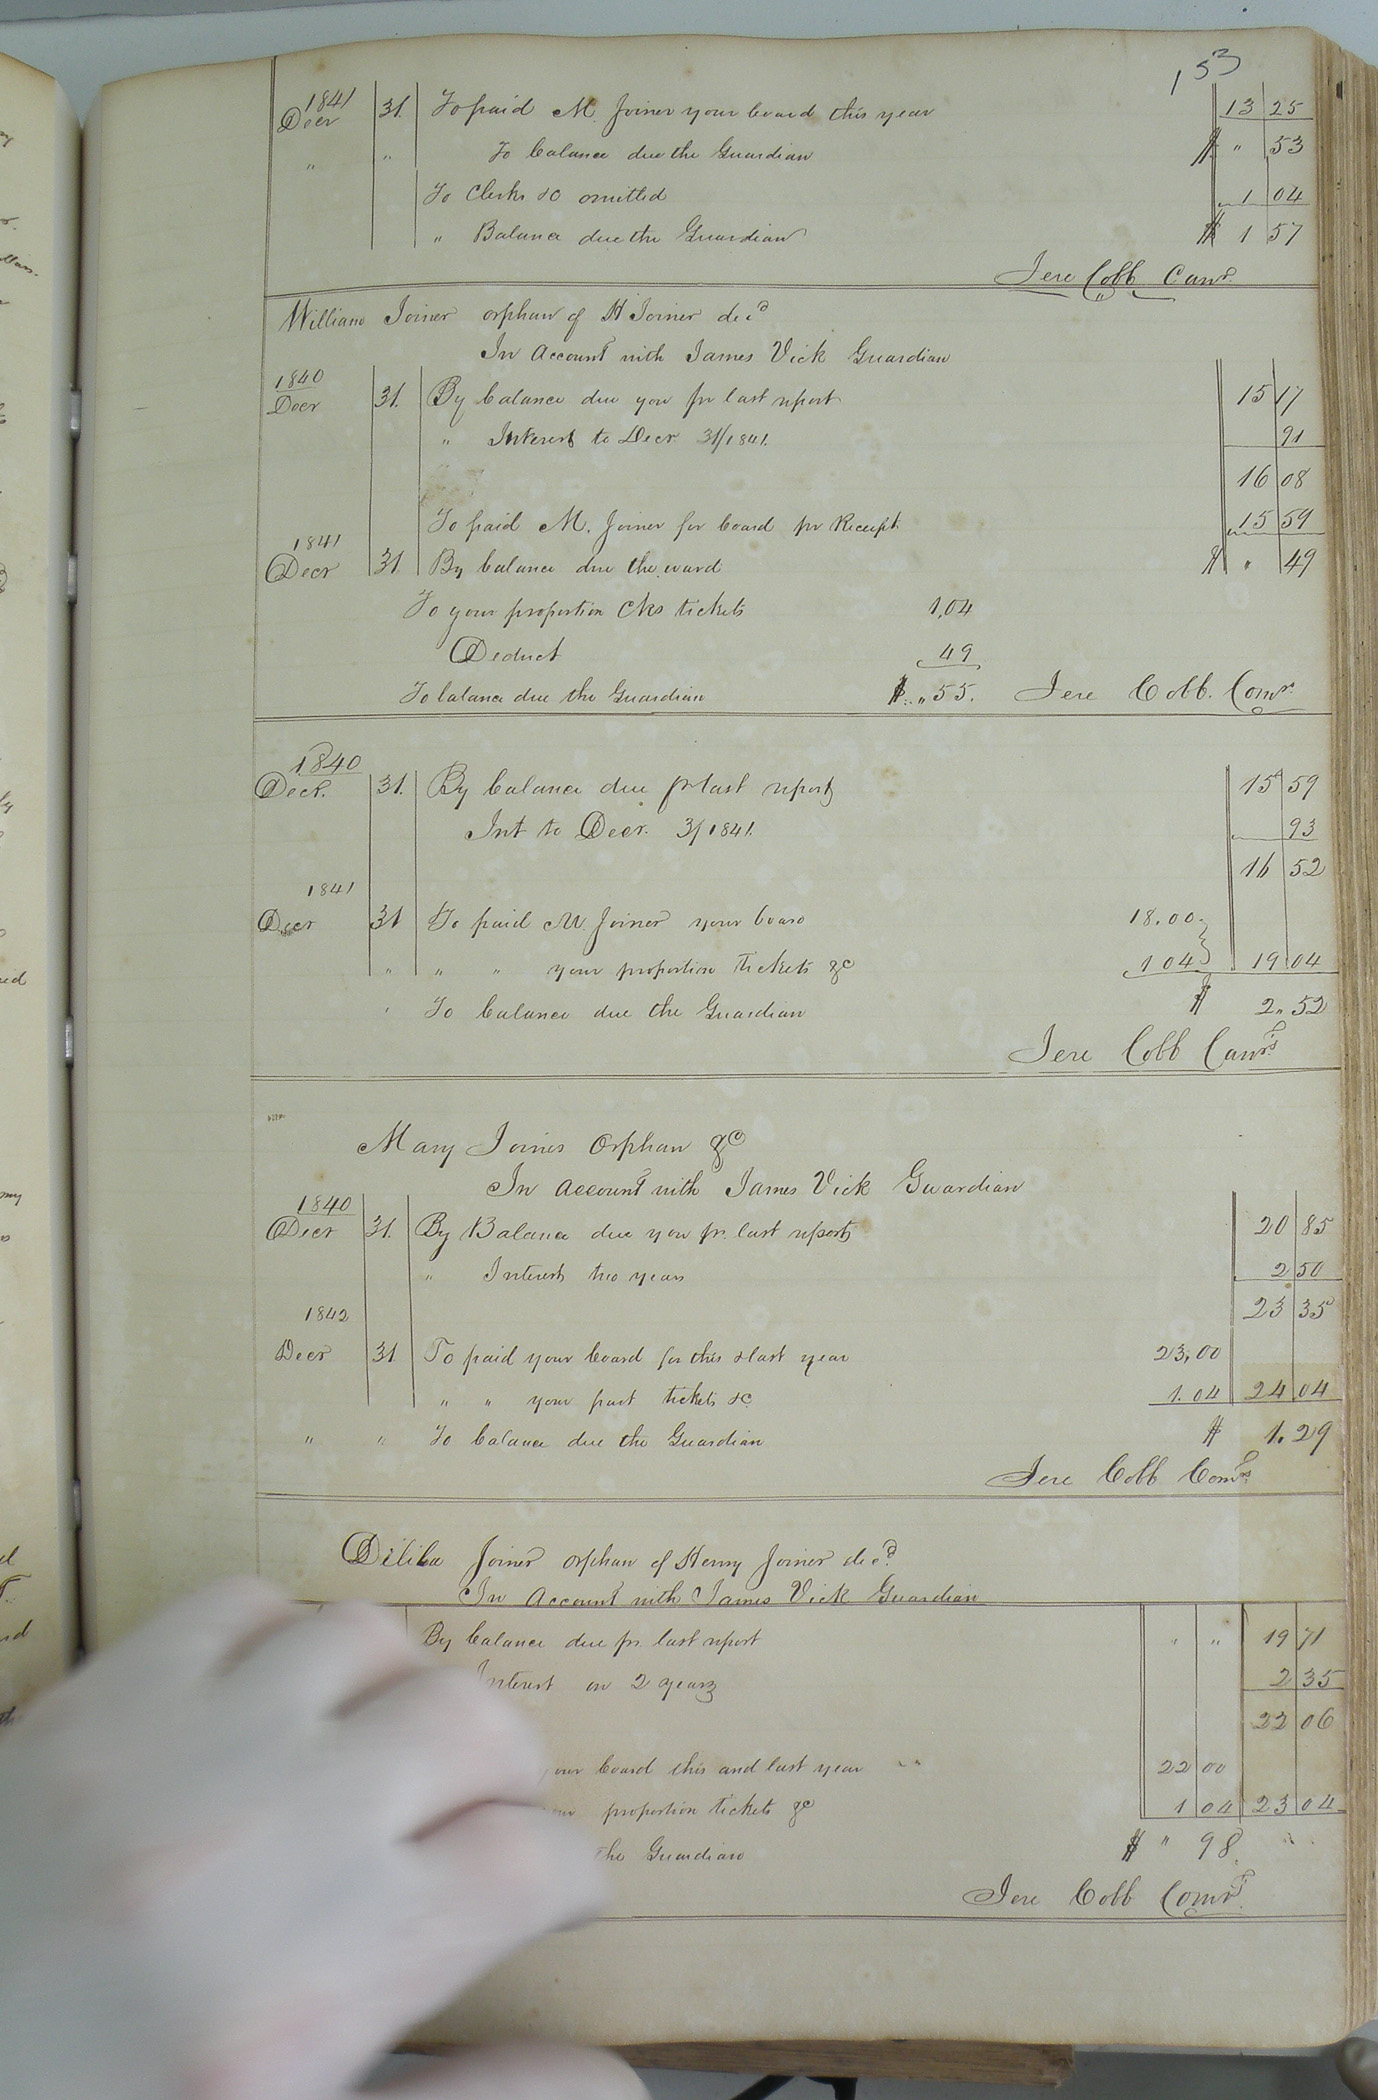 153
1841
Decr 31. To paid M. Joiner your board this year 13 25
" " To balance due the Guardian $ " 53
To Clerks &c omitted 1 04
" Balance due the Guardian $ 1 57
Jere Cobb Comr
William Joiner orphan of H Joiner decd
In Account with James Vick Guardian
1840
Decr 31. By balance due you pr last report 15 17
" Interest to Decr 31/1841. 91
16 08
To paid M. Joiner for board pr Receipt 15 59
1841
Decr 31 By balance due the ward $ " 49
To your proportion Cks tickets 1,04
Deduct 49
To balance due the Guardian $ " 55. Jere Cobb. Comr.
1840
Decr. 31. By balance due pr last report 15 59
Int to Decr. 31 1841. 93
16 52
1841
Decr 31 To paid M. Joiner your board 18.00
" " " your proportion tickets &c 1 04 19 04
To balance due the Guardian $ 2.52
Jere Cobb Comr
Mary Joiner Orphan &c
In Account with James Vick Guardian
1840
Decr 31. By Balance due you pr. last report 20 85
" Interest two years 2 50
23 35
1842
Decr 31 To paid your board for this & last year 23,00
" " your part tickets &c 1.04 24 04
" " To balance due the Guardian $ 1.29
Jere Cobb Comr
Delila Joiner orphan of Henry Joiner decd.
In Account with James Vick Guardian
By balance due pr. last report " " 19 71
Interest on 2 years 2 35
22 06
your board this and last year 22 00
your proportion tickets &c 1 04 23 04
the Guardian $ " 98
Jere Cobb Comr